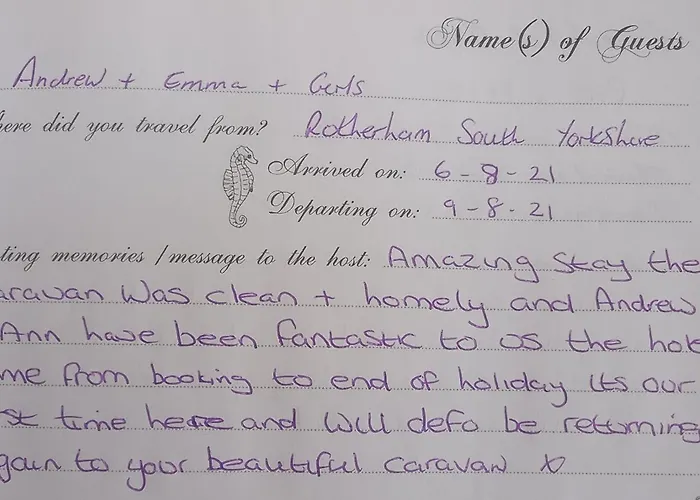 Name(s) of Guests
Andrew + Emma + Girls
ere did you travel from? Rotherham South Yorkshire
Arrived on: 6-8-21
Departing on: 9-8-21
ting memories / message to the host: Amazing stay the
aravan was clean + homely and Andrew
Ann have been fantastic to us the hol
me from booking to end of holiday its our
st time here and will defo be returning
gain to your beautiful caravan X